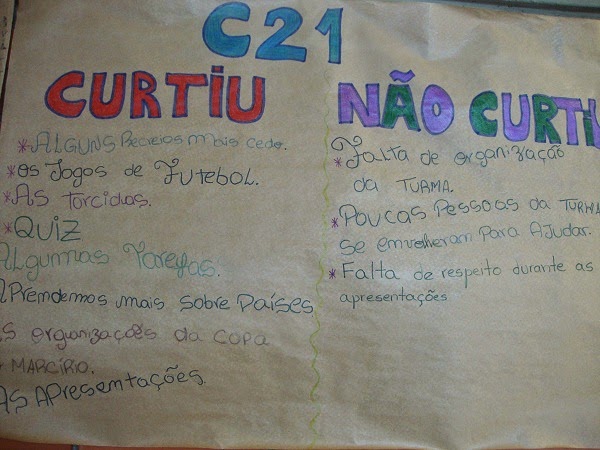 C21
CURTIU
*ALGUNS Recreios mais cedo.
*OS Jogos de
FUTEBOL.
*AS torcidas.
*QUIZ
ALgumas Tarefas.
APrendemos mais sobre Países
AS organizações da COPA
MARCÍRIO.
AS APresentAções.
NÃO CURTIU
*Falta de organização
da TURMA.
*POUCAS PessoAs da TURMA
se envolveram PARA AJudar.
*Falta de respeito durante as
apresentações